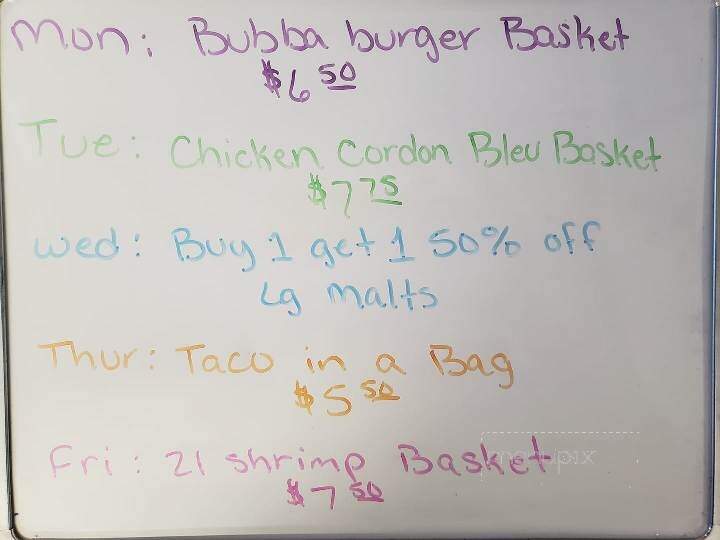 Mon: Bubba burger Basket
$6 50
Tue: Chicken Cordon Bleu Basket
$7 75
Wed: Buy 1 get 1 50% off
Lg Malts
Thur: Taco in a Bag
$5 50
Fri: 21 shrimp Basket
$7 50